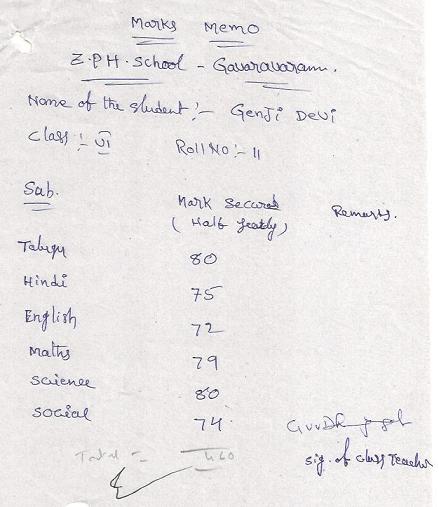 Marks Memo
Z.P.H. School - Gavaravaram.
Name of the student :- Genji Devi
Class :- VI Roll No :- 11
Sub. Mark Secured Remarks.
(Half Yearly)
Telugu 80
Hindi 75
English 72
Maths 79
Science 80
Social 74
Total = 460
Sig. of Class Teacher